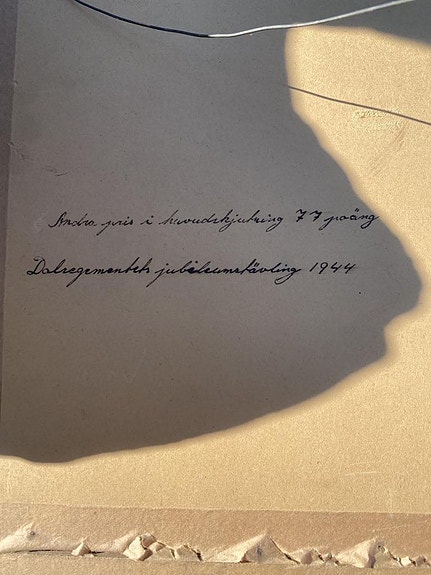 Andra pris i huvudskjutning 77 poäng
Dalregementets jubileumstävling 1944